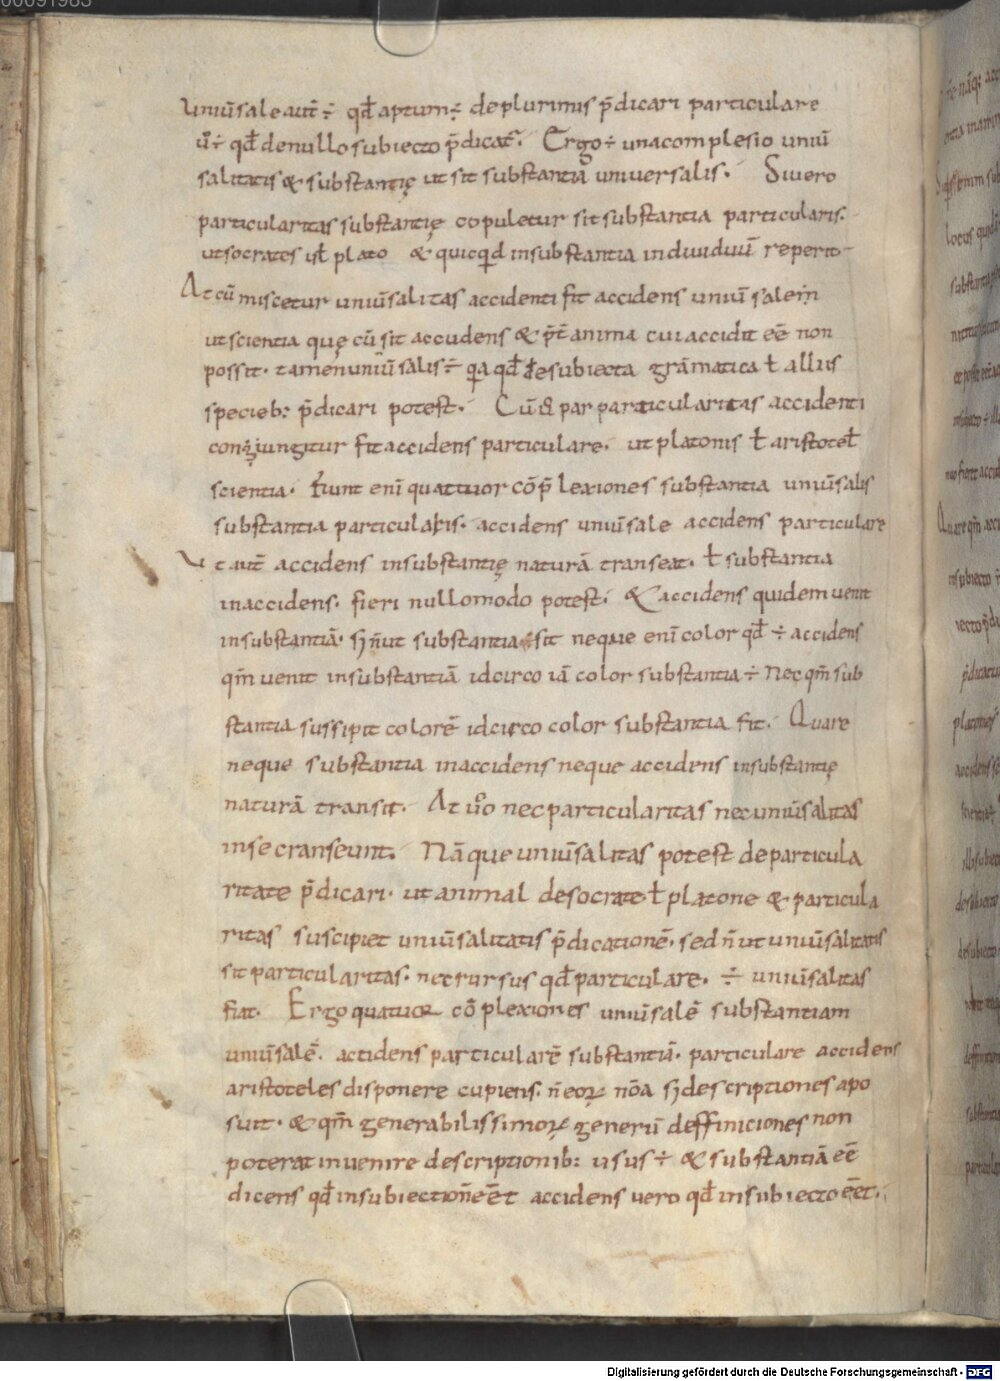 00091983
Uniūsale aut̄ ÷ qđ aptum ÷ de plurimis p̄dicari particulare
ū ÷ qđ de nullo subiecto p̄dicat̄. Ergo ÷ una complesio uniū
salitatis & substantię ut sit substantia universalis. Si vero
particularitas substantię copuletur sit substantia particularis.
ut socrates ul̄ plato & quicqđ in substantia indiuiduū reperit
At cū miscetur uniūsalitas accidenti fit accidens uniūsale
ut scientia quę cū sit accidens & p̄t̄ anima cui accidit eē non
possit. tamen uniūsalis ÷ qa qđ de subiecta grāmatica ł allius
specieb: p̄dicari potest. Cū par particularitas accidenti
coniungitur fit accidens particulare. ut platonis ł aristotel̄
scientia. Fiunt enī quattuor cōplexiones substantia uniūsalis
substantia particularis. accidens uniūsale accidens particulare
Ut aut̄ accidens in substantię naturā transeat. ł substantia
in accidens. fieri nullo modo potest. & accidens quidem uenit
in substantiā. s; n̄ ut substantia sit neque enī color qđ ÷ accidens
qm̄ uenit in substantiā idcirco iā color substantia ÷ Nec qm̄ sub
stantia sussipit colorē idcirco color substantia fit. Quare
neque substantia in accidens neque accidens in substantię
naturā transit. At ūo nec particularitas nec uniūsalitas
in se transeunt. Nāque uniūsalitas potest de particula
ritate p̄dicari. ut animal de socrate ł platone & particula
ritas suscipiet uniūsalitatis p̄dicationē. sed n̄ ut uniūsalitatis
sit particularitas. nec rursus qđ particulare. ÷ uniūsalitas
fiat. Ergo quatuor cōplexiones uniūsalē substantiam
uniūsalē. accidens particularē substantiā. particulare accidens
aristoteles disponere cupiens. n̄ eoꝝ nōa s; descriptiones apo
suit. & qm̄ generabilissimoꝝ generū deffiniciones non
poterat inuenire descriptionib: usus ÷ & substantiā eē
dicens qđ in subiecto n̄ eēt accidens vero qđ in subiecto eēt.
Digitalisierung gefördert durch die Deutsche Forschungsgemeinschaft - DFG